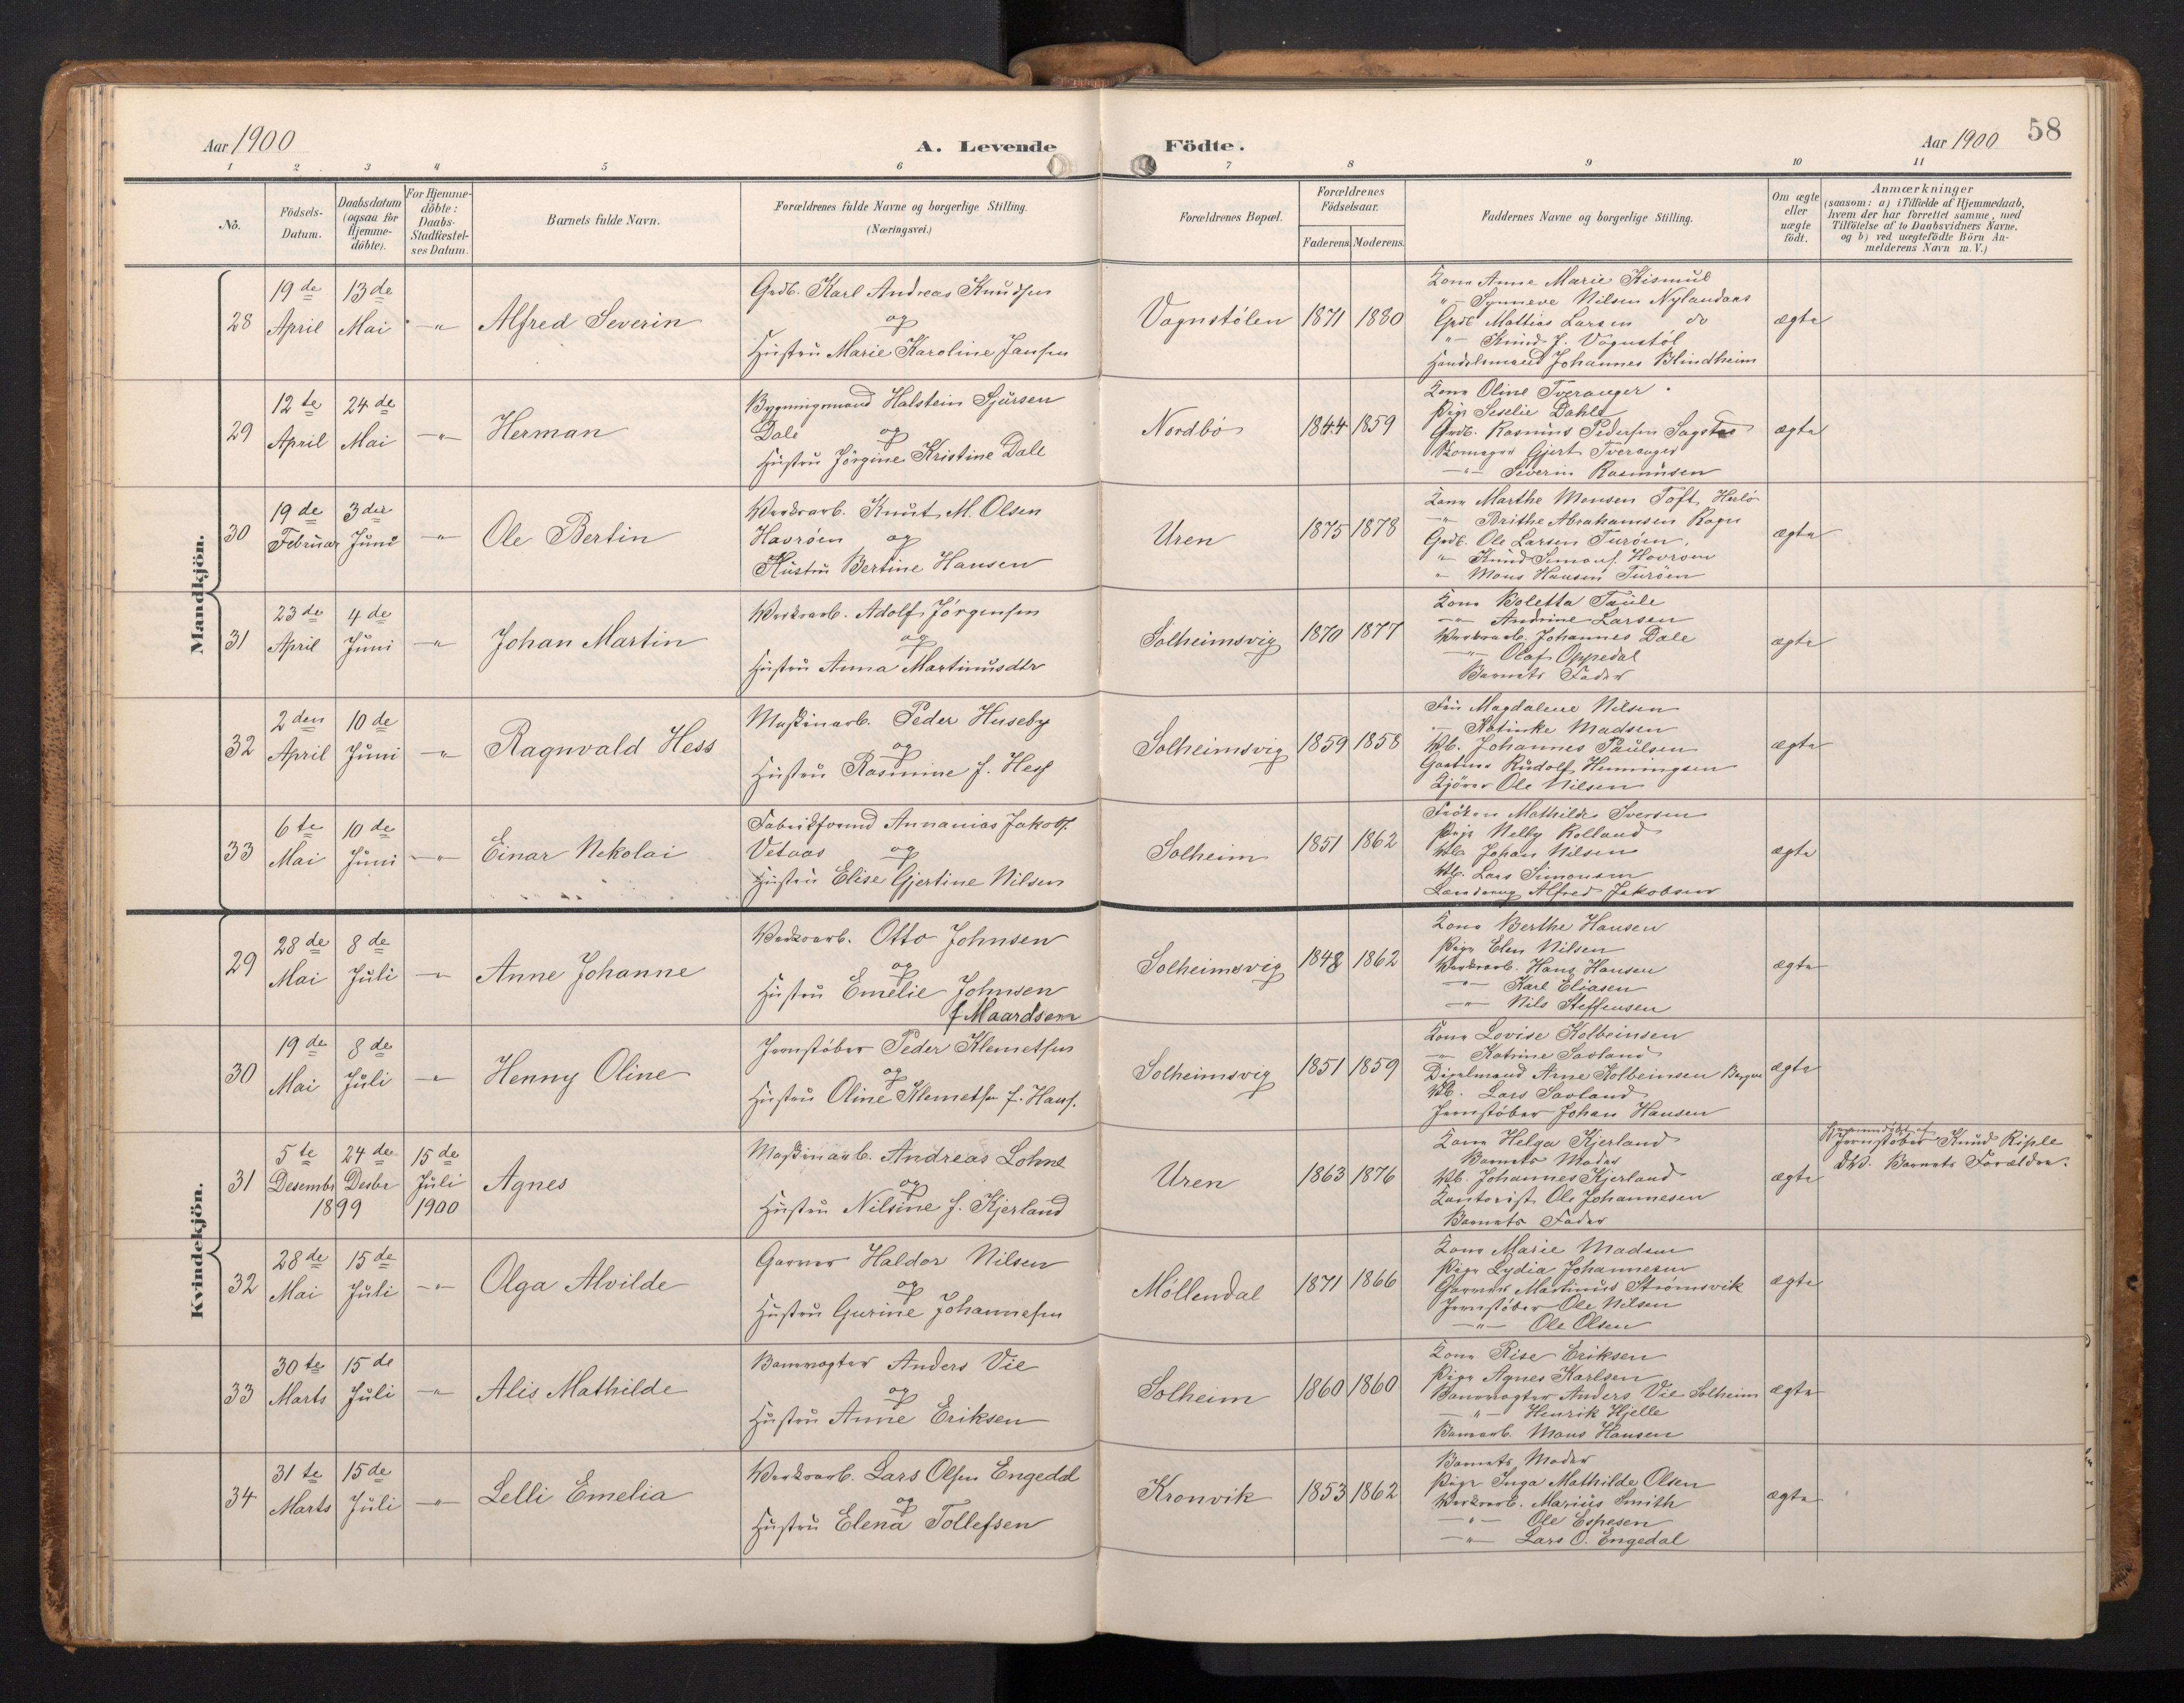 Aar 1900
A. Levende Födte.
Aar 1900
58
1 2 3 4 5 6 7 8 9 10 11
No.
Födsels-Datum.
Daabsdatum (ogsaa for Hjemme-döbte).
For Hjemme-döbte: Daabs-Stadfæstel-ses Datum.
Barnets fulde Navn.
Forældrenes fulde Navne og borgerlige Stilling.
(Næringsvei.)
Forældrenes Bopæl.
Forældrenes Födselsaar.
Faderens. Moderens.
Faddernes Navne og borgerlige Stilling.
Om ægte eller uægte födt.
Anmærkninger
(saasom: a) i Tilfælde af Hjemmedaab,
hvem der har forrettet samme, med
Tilföielse af to Daabsvidners Navne,
og b) ved uægtefödte Börn An-
melderens Navn m. V.)
Mandkjön.
28 19de April 13de Mai -"- Alfred Severin
Grdb. Karl Andreas Knudsen
og
Hustru Marie Karoline Jansen
Vognstølen 1871 1880
Kone Anne Marie Kismul
"- Synneve Nilsen Nylandaas
Grdb Mattias Larsen do
"- Knud J. Vognstøl
Handelsmand Johannes Blindheim
ægte
29 12te April 24de Mai -"- Herman
Bygningsmand Halstein Sjursen
Dale og
Hustru Jörgine Kristine Dale
Nordbö 1844 1859
Kone Oline Tveranger
Pige Seselie Dahle
Grdb. Rasmus Pedersen Sagstad
Skomager Gjert Tveranger
-"- Severin Rasmussen
ægte
30 19de Februar 3die Juni -"- Ole Bertin
Værksarb. Knut M. Olsen
Havrøen og
Hustru Bertine Hansen
Uren 1875 1878
Kone Marthe Monsen Toft, Herlö
-"- Brithe Abrahamsen Ragn
Grdb. Ole Larsen Turøen,
"- Knud Simons. Havrøen
"- Mons Hansen Turøen
ægte
31 23de April 4de Juni -"- Johan Martin
Værksarb. Adolf Jörgensen
og
Hustru Anna Martinusdtr
Solheimsvig 1870 1877
Kone Boletta Taule
-"- Andrine Larsen
Værksarb. Johannes Dale
-"- Olaf Oppedal
Barnets Fader
ægte
32 2den April 10de Juni -"- Ragnvald Hess
Maskinarb. Peder Huseby
og
Hustru Rasmine f. Hess
Solheimsvig 1859 1858
Fru Magdalene Nilsen
-"- Katinke Madsen
Vb. Johannes Paulsen
Gartner Rudolf Henningsen
Kjører Ole Nilsen
ægte
33 6te Mai 10de Juni -"- Einar Nekolai
Fabrikformd Annanias Jakobs.
Vetaas og
Hustru Elise Gjertine Nilsen
Solheim 1851 1862
Fröken Mathilde Iversen
Pige Nelly Rolland
Vb. Johan Nilsen
Vb. Lars Simonsen
Alfred Jakobsen
ægte
Kvindekjön.
29 28de Mai 8de Juli -"- Anne Johanne
Værksarb. Otto Johnsen
og
Hustru Emelie Johnsen
f Maardsen
Solheimsvig 1848 1862
Kone Berthe Hansen
Pige Elen Nilsen
Værksarb. Hans Hansen
-"- Karl Eliasen
-"- Nils Steffensen
ægte
30 19de Mai 8de Juli -"- Henny Oline
Jernstöber Peder Klemetsen
og
Hustru Oline Klemetsen f. Hans.
Solheimsvig 1851 1859
Kone Lovise Kolbeinsen
-"- Katrine Savland
Arne Kolbeinsen Bergen
Vb. Lars Savland
Jernstöber Johan Hansen
ægte
31 5te Desembr 24de Desbr 1899 15de Juli 1900 Agnes
Maskinarb. Andreas Lohne
og
Hustru Nilsine f. Kjerland
Uren 1863 1876
Kone Helga Kjerland
Barnets Moder
Vb. Johannes Kjerland
Kontorist Ole Johannesen
Barnets Fader
ægte
Hjemmedöbt af
Jernstöber Knud Riple
Dbv. Barnets Forældre.
32 28de Mai 15de Juli -"- Olga Alvilde
Garver Haldor Nilsen
og
Hustru Gurine Johannesen
Möllendal 1871 1866
Kone Marie Madsen
Pige Lydia Johannesen
Garver Martinus Strömsvik
Jernstöber Ole Nilsen
-"- Ole Olsen
ægte
33 30te Marts 15de Juli -"- Alis Mathilde
Banevogter Anders Vie
og
Hustru Anne Eriksen
Solheim 1860 1860
Kone Rise Eriksen
Pige Agnes Karlsen
Banevogter Anders Vie Solheim
-"- Henrik Hjelle
Banearb. Mons Hansen
ægte
34 31te Marts 15de Juli -"- Lelli Emelia
Værksarb. Lars Olsen Engedal
og
Hustru Elena Tollefsen
Kronvik 1853 1862
Barnets Moder
Pige Inga Mathilde Olsen
Værksarb. Marius Smith
-"- Ole Espesen
-"- Lars O. Engedal
ægte